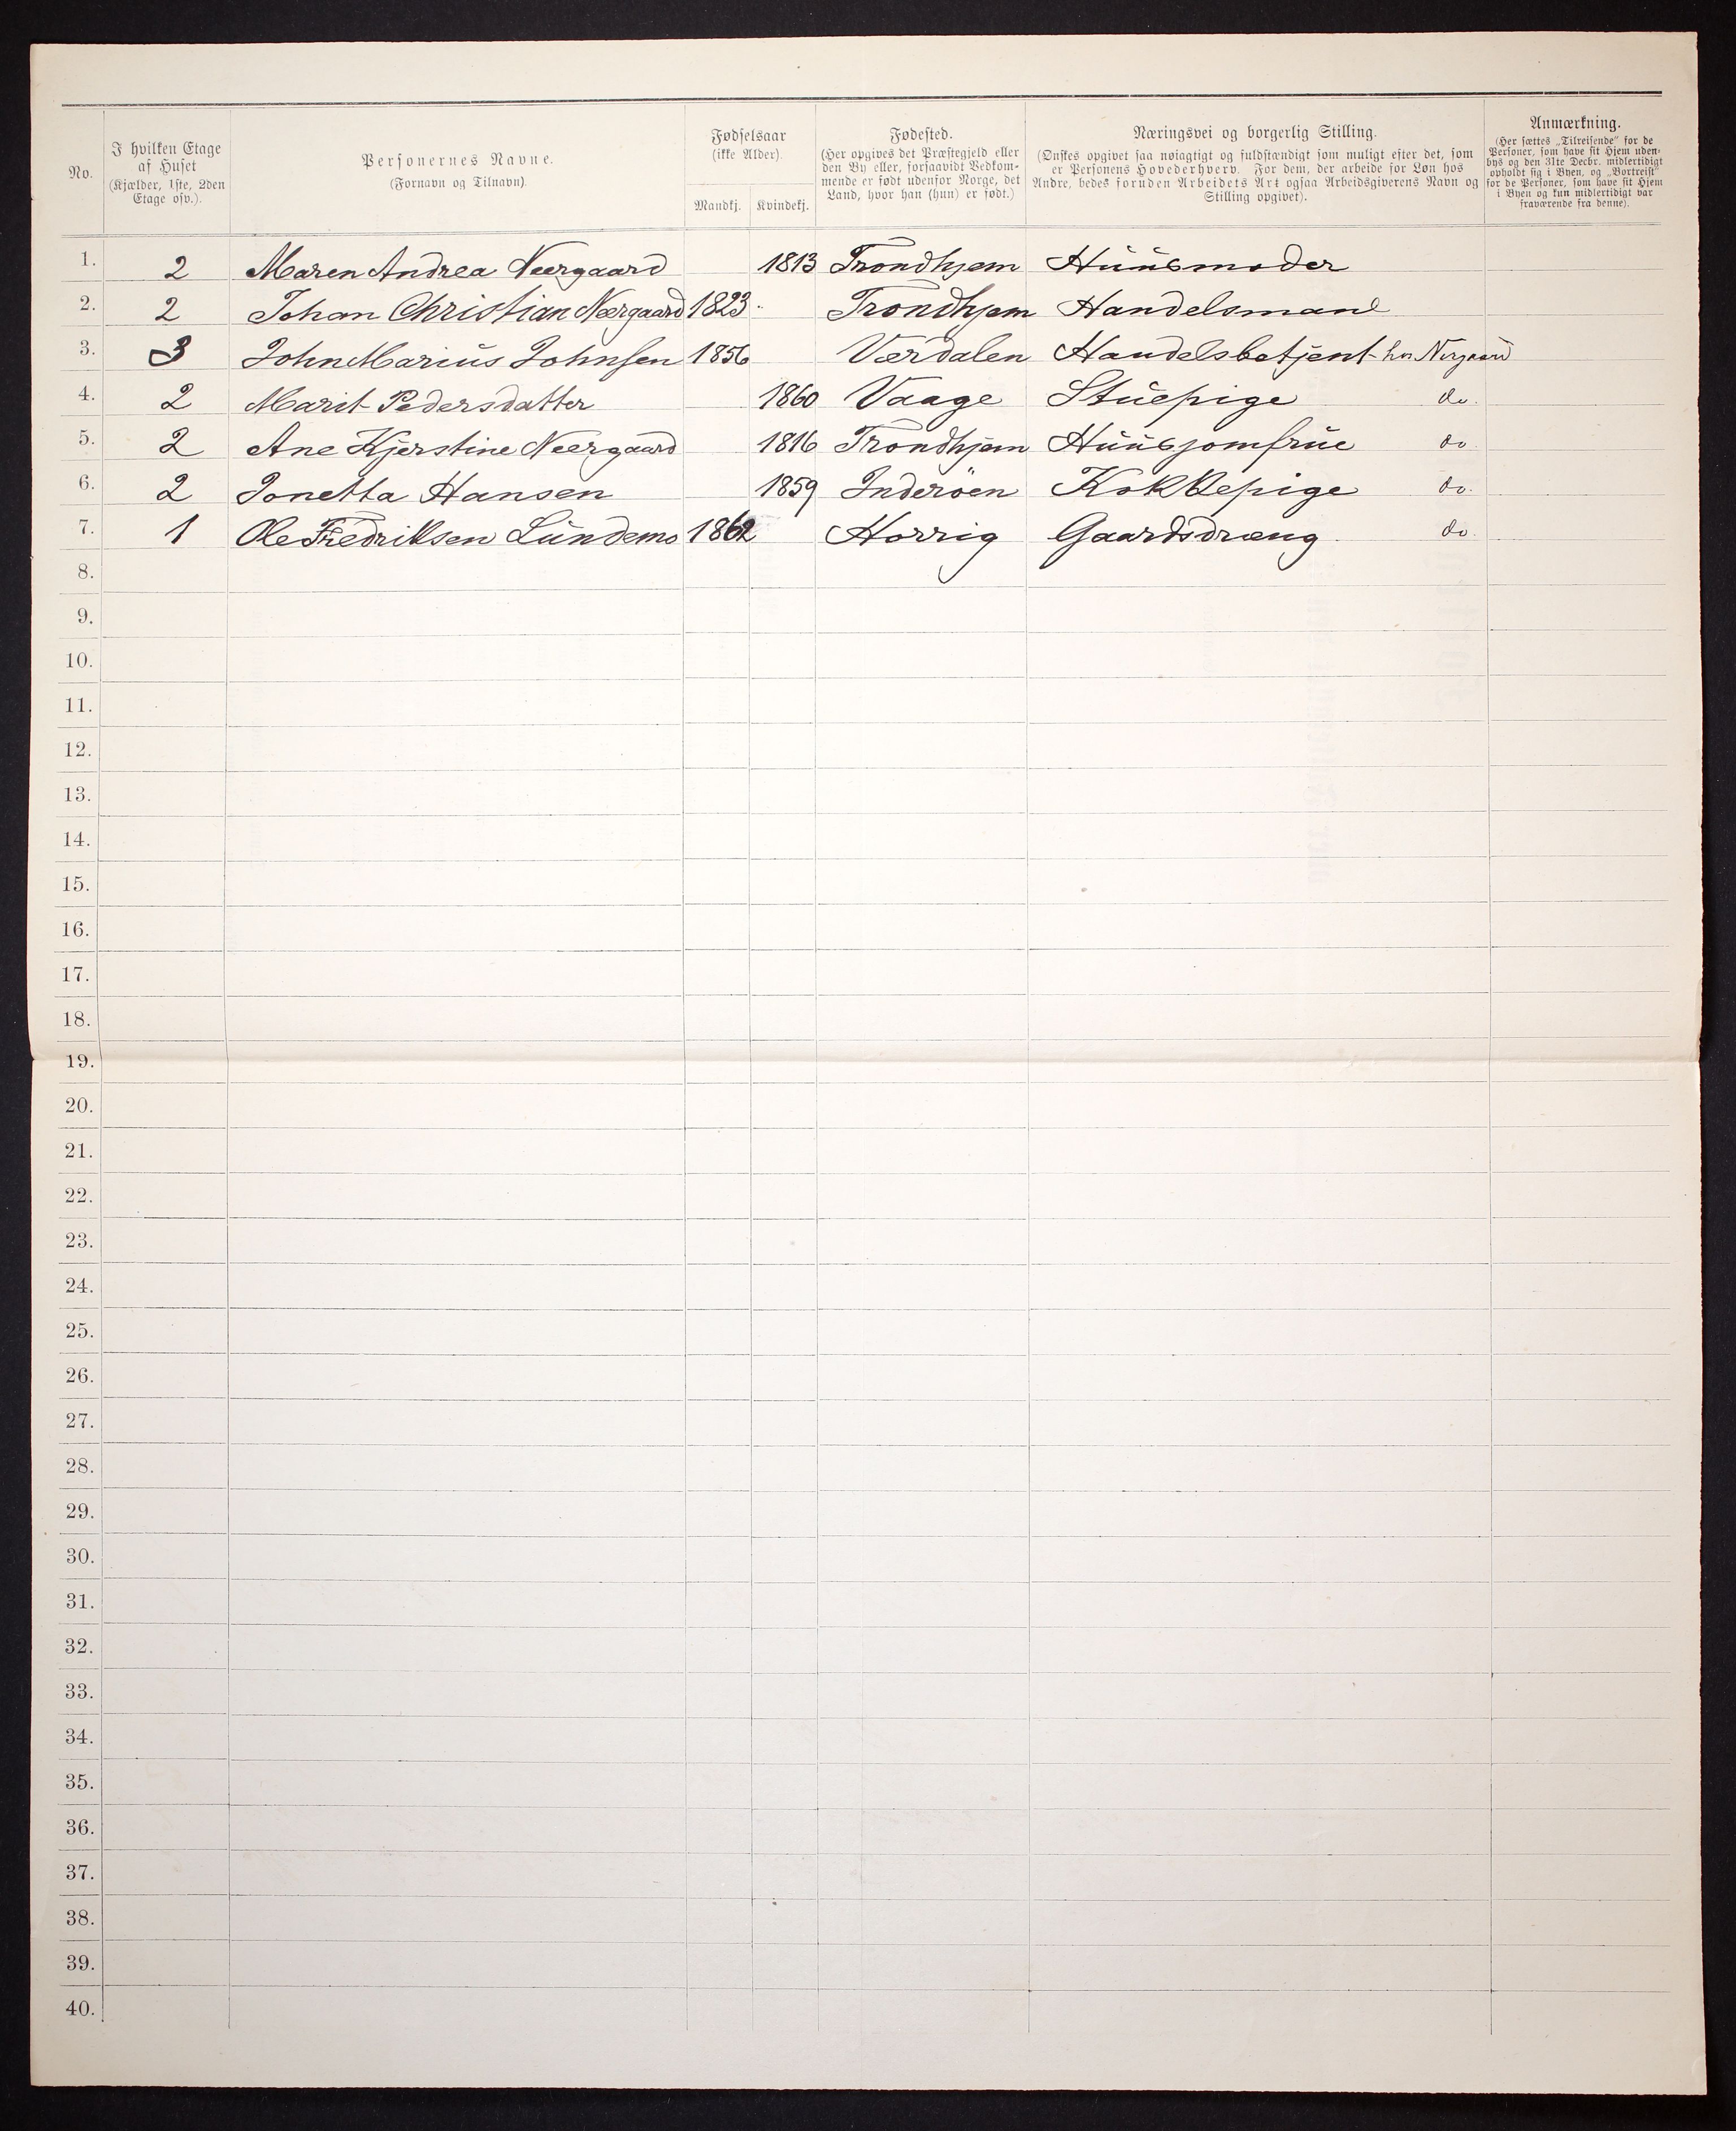 No.
I hvilken Etage
af Huset
(Kjælder, 1ste, 2den
Etage osv.).
Personernes Navne.
(Fornavn og Tilnavn).
Fødselsaar
(ikke Alder).
Mandkj. Kvindekj.
Fødested.
(Her opgives det Præstegjeld eller
den By eller, forsaavidt Vedkom-
mende er født udenfor Norge, det
Land, hvor han (hun) er født.)
Næringsvei og borgerlig Stilling.
(Ønskes opgivet saa nøiagtigt og fuldstændigt som muligt efter det, som
er Personens Hovederhverv. For dem, der arbeide for Løn hos
Andre, bedes foruden Arbeidets Art ogsaa Arbeidsgiverens Navn og
Stilling opgivet).
Anmærkning.
(Her sættes „Tilreisende“ for de
Personer, som have sit Hjem uden-
bys og den 31te Decbr. midlertidigt
opholdt sig i Byen, og „Bortreist“
for de Personer, som have sit Hjem
i Byen og kun midlertidigt var
fraværende fra denne).
1. 2 Maren Andrea Neergaard 1813 Trondhjem Huusmoder
2. 2 Johan Christian Neergaard 1823 Trondhjem Handelsmand
3. 3 John Marius Johnsen 1856 Værdalen Handelsbetjent hr. Nergaard
4. 2 Marit Pedersdatter 1860 Vaage Stuepige do.
5. 2 Ane Kjerstine Neergaard 1816 Trondhjem Huusjomfrue do
6. 2 Jonetta Hansen 1859 Inderöen Kokkepige do.
7. 1 Ole Fredriksen Lundemo 1862 Horrig Gaardsdræng do.
8.
9.
10.
11.
12.
13.
14.
15.
16.
17.
18.
19.
20.
21.
22.
23.
24.
25.
26.
27.
28.
29.
30.
31.
32.
33.
34.
35.
36.
37.
38.
39.
40.